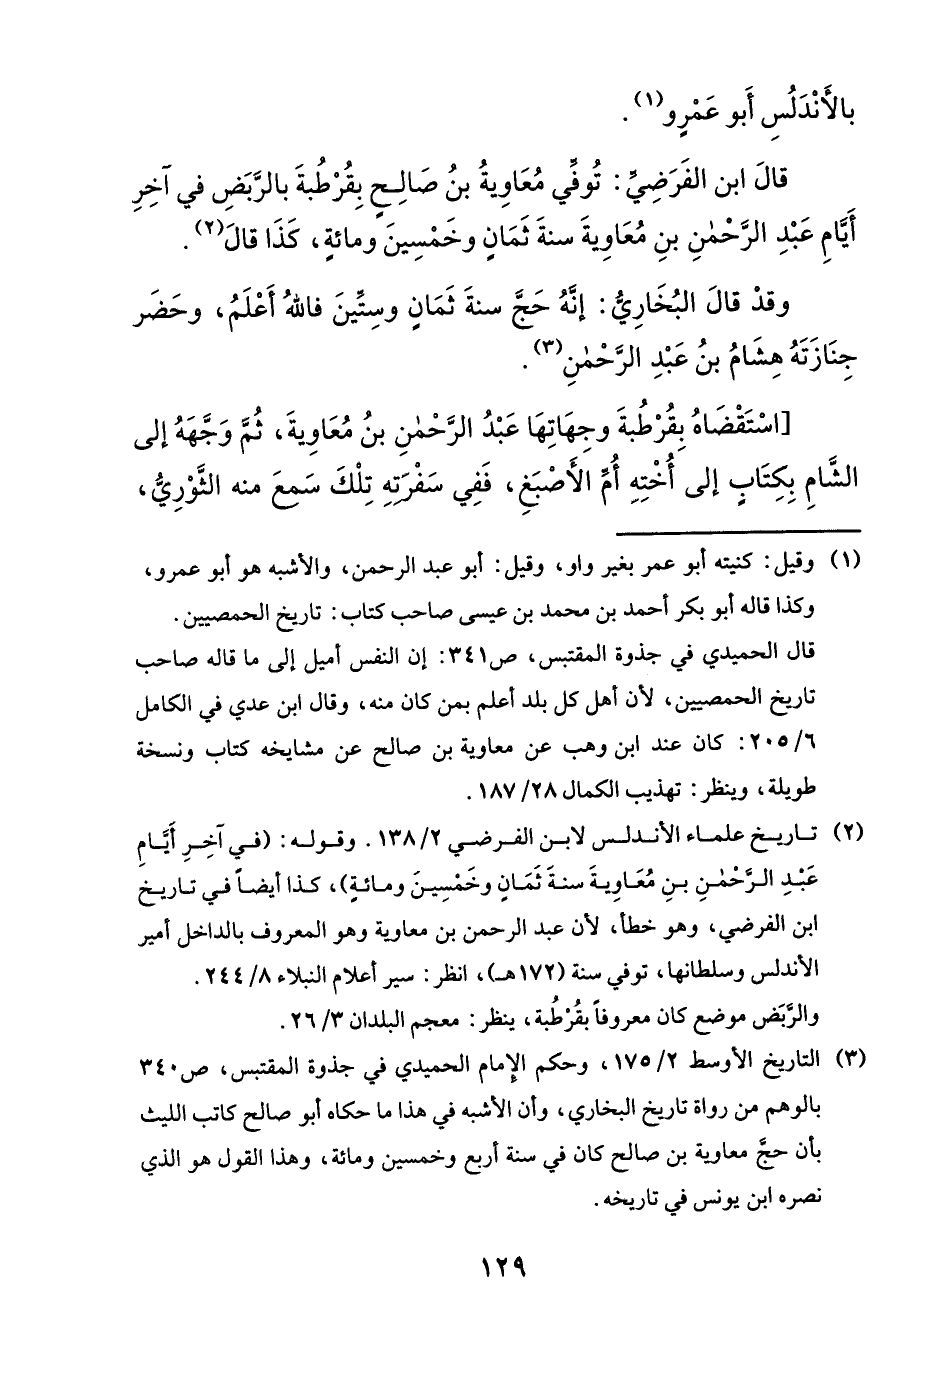 بالأَنْدَلُسِ أَبو عَمْرٍو(١).
قالَ ابن الفَرَضِيِّ: تُوفِّي مُعَاوِيةُ بنُ صَالِحٍ بِقُرْطُبةَ بالرَّبَضِ في آخِرِ
أَيَّامِ عَبْدِ الرَّحْمٰنِ بنِ مُعَاوِيةَ سنةَ ثَمَانٍ وخَمْسِينَ ومائةٍ، كَذَا قالَ(٢).
وقدْ قالَ البُخَارِيُّ: إنَّهُ حَجَّ سنةَ ثَمَانٍ وسِتِّينَ فاللهُ أَعْلَمُ، وحَضَر
جِنَازَتَهُ هِشَامُ بنُ عَبْدِ الرَّحْمٰنِ(٣).
[اسْتَقْضَاهُ بِقُرْطُبةَ وجِهَاتِهَا عَبْدُ الرَّحْمٰنِ بنُ مُعَاوِيةَ، ثُمَّ وَجَّهَهُ إلى
الشَّامِ بِكِتَابٍ إلى أُخْتِهِ أُمِّ الأَصْبَغِ، فَفِي سَفْرَتِهِ تِلْكَ سَمِعَ منه الثَّوْرِيُّ،
(١) وقيل: كنيته أبو عمر بغير واو، وقيل: أبو عبد الرحمن، والأشبه هو أبو عمرو،
وكذا قاله أبو بكر أحمد بن محمد بن عيسى صاحب كتاب: تاريخ الحمصيين.
قال الحميدي في جذوة المقتبس، ص٣٤١: إن النفس أميل إلى ما قاله صاحب
تاريخ الحمصيين، لأن أهل كل بلد أعلم بمن كان منه، وقال ابن عدي في الكامل
٦/ ٢٠٥: كان عند ابن وهب عن معاوية بن صالح عن مشايخه كتاب ونسخة
طويلة، وينظر: تهذيب الكمال ٢٨/ ١٨٧.
(٢) تاريخ علماء الأندلس لابن الفرضي ٢/ ١٣٨. وقوله: (في آخِرِ أَيَّامِ
عَبْدِ الرَّحْمٰنِ بنِ مُعَاوِيةَ سنةَ ثَمَانٍ وخَمْسِينَ ومائةٍ)، كذا أيضاً في تاريخ
ابن الفرضي، وهو خطأ، لأن عبد الرحمن بن معاوية وهو المعروف بالداخل أمير
الأندلس وسلطانها، توفي سنة (١٧٢هـ)، انظر: سير أعلام النبلاء ٨/ ٢٤٤.
والرَّبَض موضع كان معروفاً بقُرْطُبة، ينظر: معجم البلدان ٣/ ٢٦.
(٣) التاريخ الأوسط ٢/ ١٧٥، وحكم الإمام الحميدي في جذوة المقتبس، ص٣٤٠
بالوهم من رواة تاريخ البخاري، وأن الأشبه في هذا ما حكاه أبو صالح كاتب الليث
بأن حجَّ معاوية بن صالح كان في سنة أربع وخمسين ومائة، وهذا القول هو الذي
نصره ابن يونس في تاريخه.
١٢٩